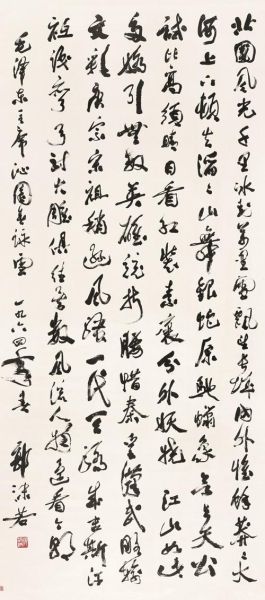 北國風光千里冰封萬里雪飄望長城內外惟餘莽々大
河上下頓失滔々山舞銀蛇原馳蠟象欲与天公
試比高須晴日看紅裝素裹分外妖嬈江山如此
多嬌引無數英雄競折腰惜秦皇漢武略輸
文彩唐宗宋祖稍遜風騷一代天驕成吉斯汗
祇識彎弓射大雕俱往矣數風流人物還看今朝
毛澤東主席沁園春詠雪 一九六四年春 郭沫若